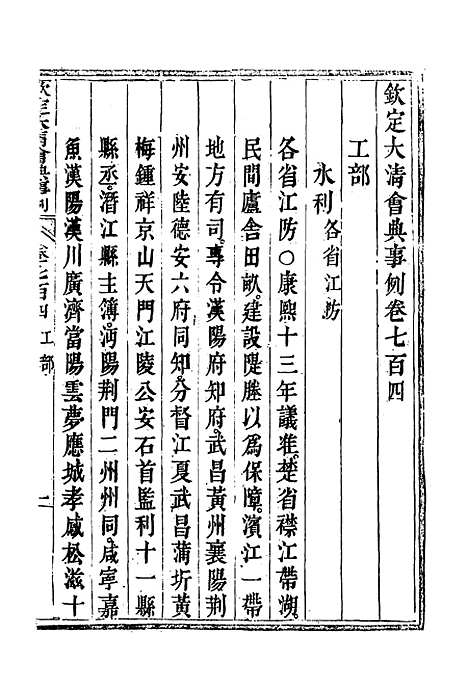 欽定大清會典事例卷七百四
工部
水利各省江防
各省江防○康熙十三年議准。楚省襟江帶湖。
民間廬舍田畝。建設隄塍以爲保障。濱江一帶
地方有司。專令漢陽府知府。武昌黃州襄陽荆
州安陸德安六府同知。分督江夏武昌蒲圻黃
梅鍾祥京山天門江陵公安石首監利十一縣
縣丞。潛江縣主簿。沔陽荆門二州州同。咸寧嘉
魚漢陽漢川廣濟當陽雲夢應城孝感松滋十
欽定大清會典事例 卷七百四 工部 一